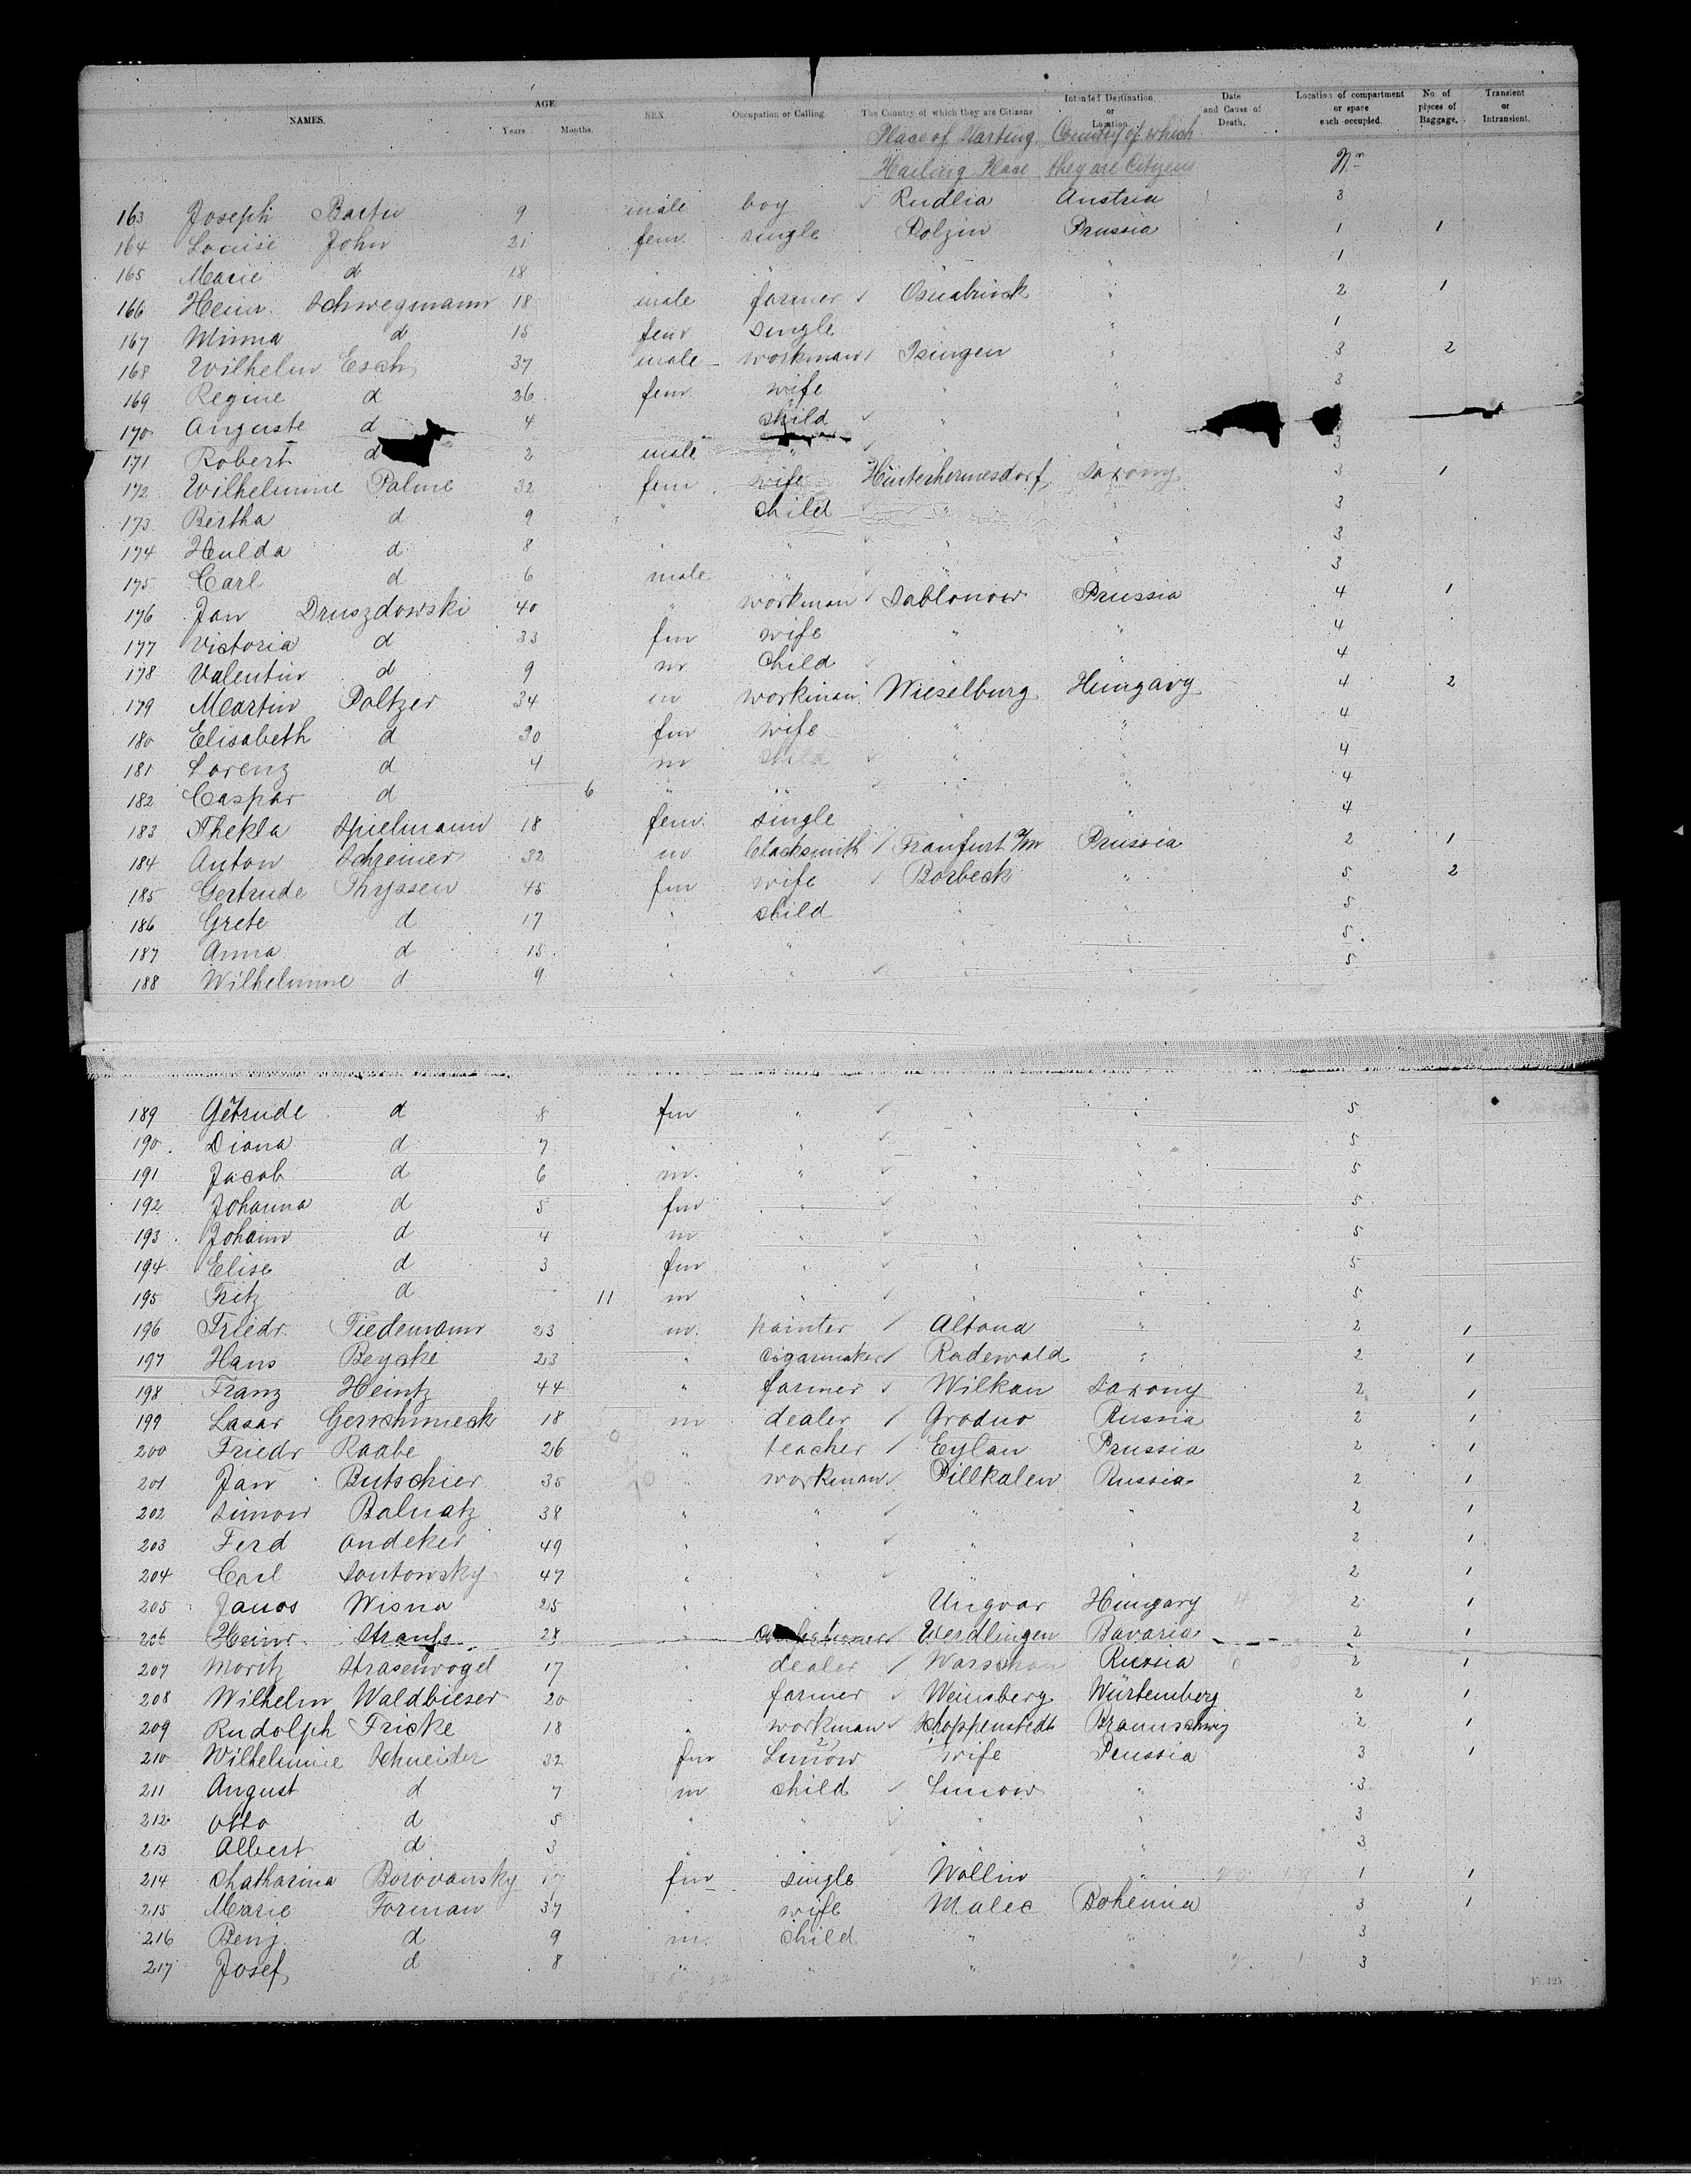 NAMES. AGE. Years Months. SEX. Occupation or Calling. The Country of which they are Citizens Intended Destination or Location. Date and Cause of Death. Location of compartment or space each occupied. No. of pieces of Baggage. Transient or Intransient.
Place of Starting Country of which
Hailing Place they are Citizens Nr
163 Joseph 9 male boy Rudlia Austria 3
164 Louise John 21 fem. single Polzin Prussia 1 1
165 Marie d 18 " " " 1
166 Heinr. Schwegmann 18 male farmer Osnabrück " 2 1
167 Minna d 15 fem single " 1
168 Wilhelm Esch 37 male workman Isingen " 3 2
169 Regine d 26 fem wife " " 3
170 Auguste d 4 child " "
171 Robert d 2 male " " 3
172 Wilhelmine Palme 32 fem. wife Hinterhermesdorf Saxony 3 1
173 Bertha d 9 " child " " 3
174 Hulda d 8 " " " " 3
175 Carl d 6 male " " " 3
176 Jan Druszdowski 40 " workman Sablonow Prussia 4 1
177 Victoria d 33 fm wife " " 4
178 Valentin d 9 m child " " 4
179 Martin Paltzer 34 m workman Wieselburg Hungary 4 2
180 Elisabeth d 30 fm wife " " 4
181 Lorenz d 4 m child " " 4
182 Caspar d 6 " " " " 4
183 Thekla Spielmann 18 fem. single " " 4
184 Anton Schreiner 32 m blacksmith Franfurt a/m Prussia 2 1
185 Gertrude Thyssen 45 fm wife Borbeck " 5 2
186 Grete d 17 " child " " 5
187 Anna d 15 " " " " 5
188 Wilhelmine d 9 " " " " 5
189 Getrude d 8 fm " " " 5
190 Diana d 7 " " " " 5
191 Jacob d 6 m. " " " 5
192 Johanna d 5 fm " " " 5
193 Johann d 4 m " " " 5
194 Elise d 3 fm " " " 5
195 Fritz d 11 m " " " 5
196 Friedr. Tiedemann 23 m. painter Altona " 2 1
197 Hans Beyske 23 " cigarmaker Radewald " 2 1
198 Franz Heintz 44 " farmer Wilkau Saxony 2 1
199 Lasar Gerschmieck 18 m dealer Grodno Russia 2 1
200 Friedr Raabe 26 " teacher Eylau Prussia 2 1
201 Jan Butschier 35 " workman Pillkalen Russia 2 1
202 Simon Balnatz 38 " " " " 2 1
203 Ferd Andeker 49 " " " " 2 1
204 Carl Sontowsky 47 " " " " 2 1
205 Janos Wisna 25 " Ungvar Hungary 2 1
206 Heinr. Strauss 28 " Werdlingen Bavaria 2 1
207 Moritz Strasenvogel 17 " dealer Warschau Russia 2 1
208 Wilhelm Waldbieser 20 " farmer Weinsberg Würtemberg 2 1
209 Rudolph Fricke 18 " workman Schoppenstedt Braunschwig 2 1
210 Wilhelmine Schneider 32 fm Limow wife Prussia 3 1
211 August d 7 m child Limow " 3
212 Otto d 5 " " " " 3
213 Albert d 3 " " " " 3
214 Chatharina Borovansky 17 fm single Wollin " 1 1
215 Marie Forman 37 " wife Malec Bohemia 3 1
216 Benj. d 9 m. child " " 3
217 Josef d 8 " " " " 3